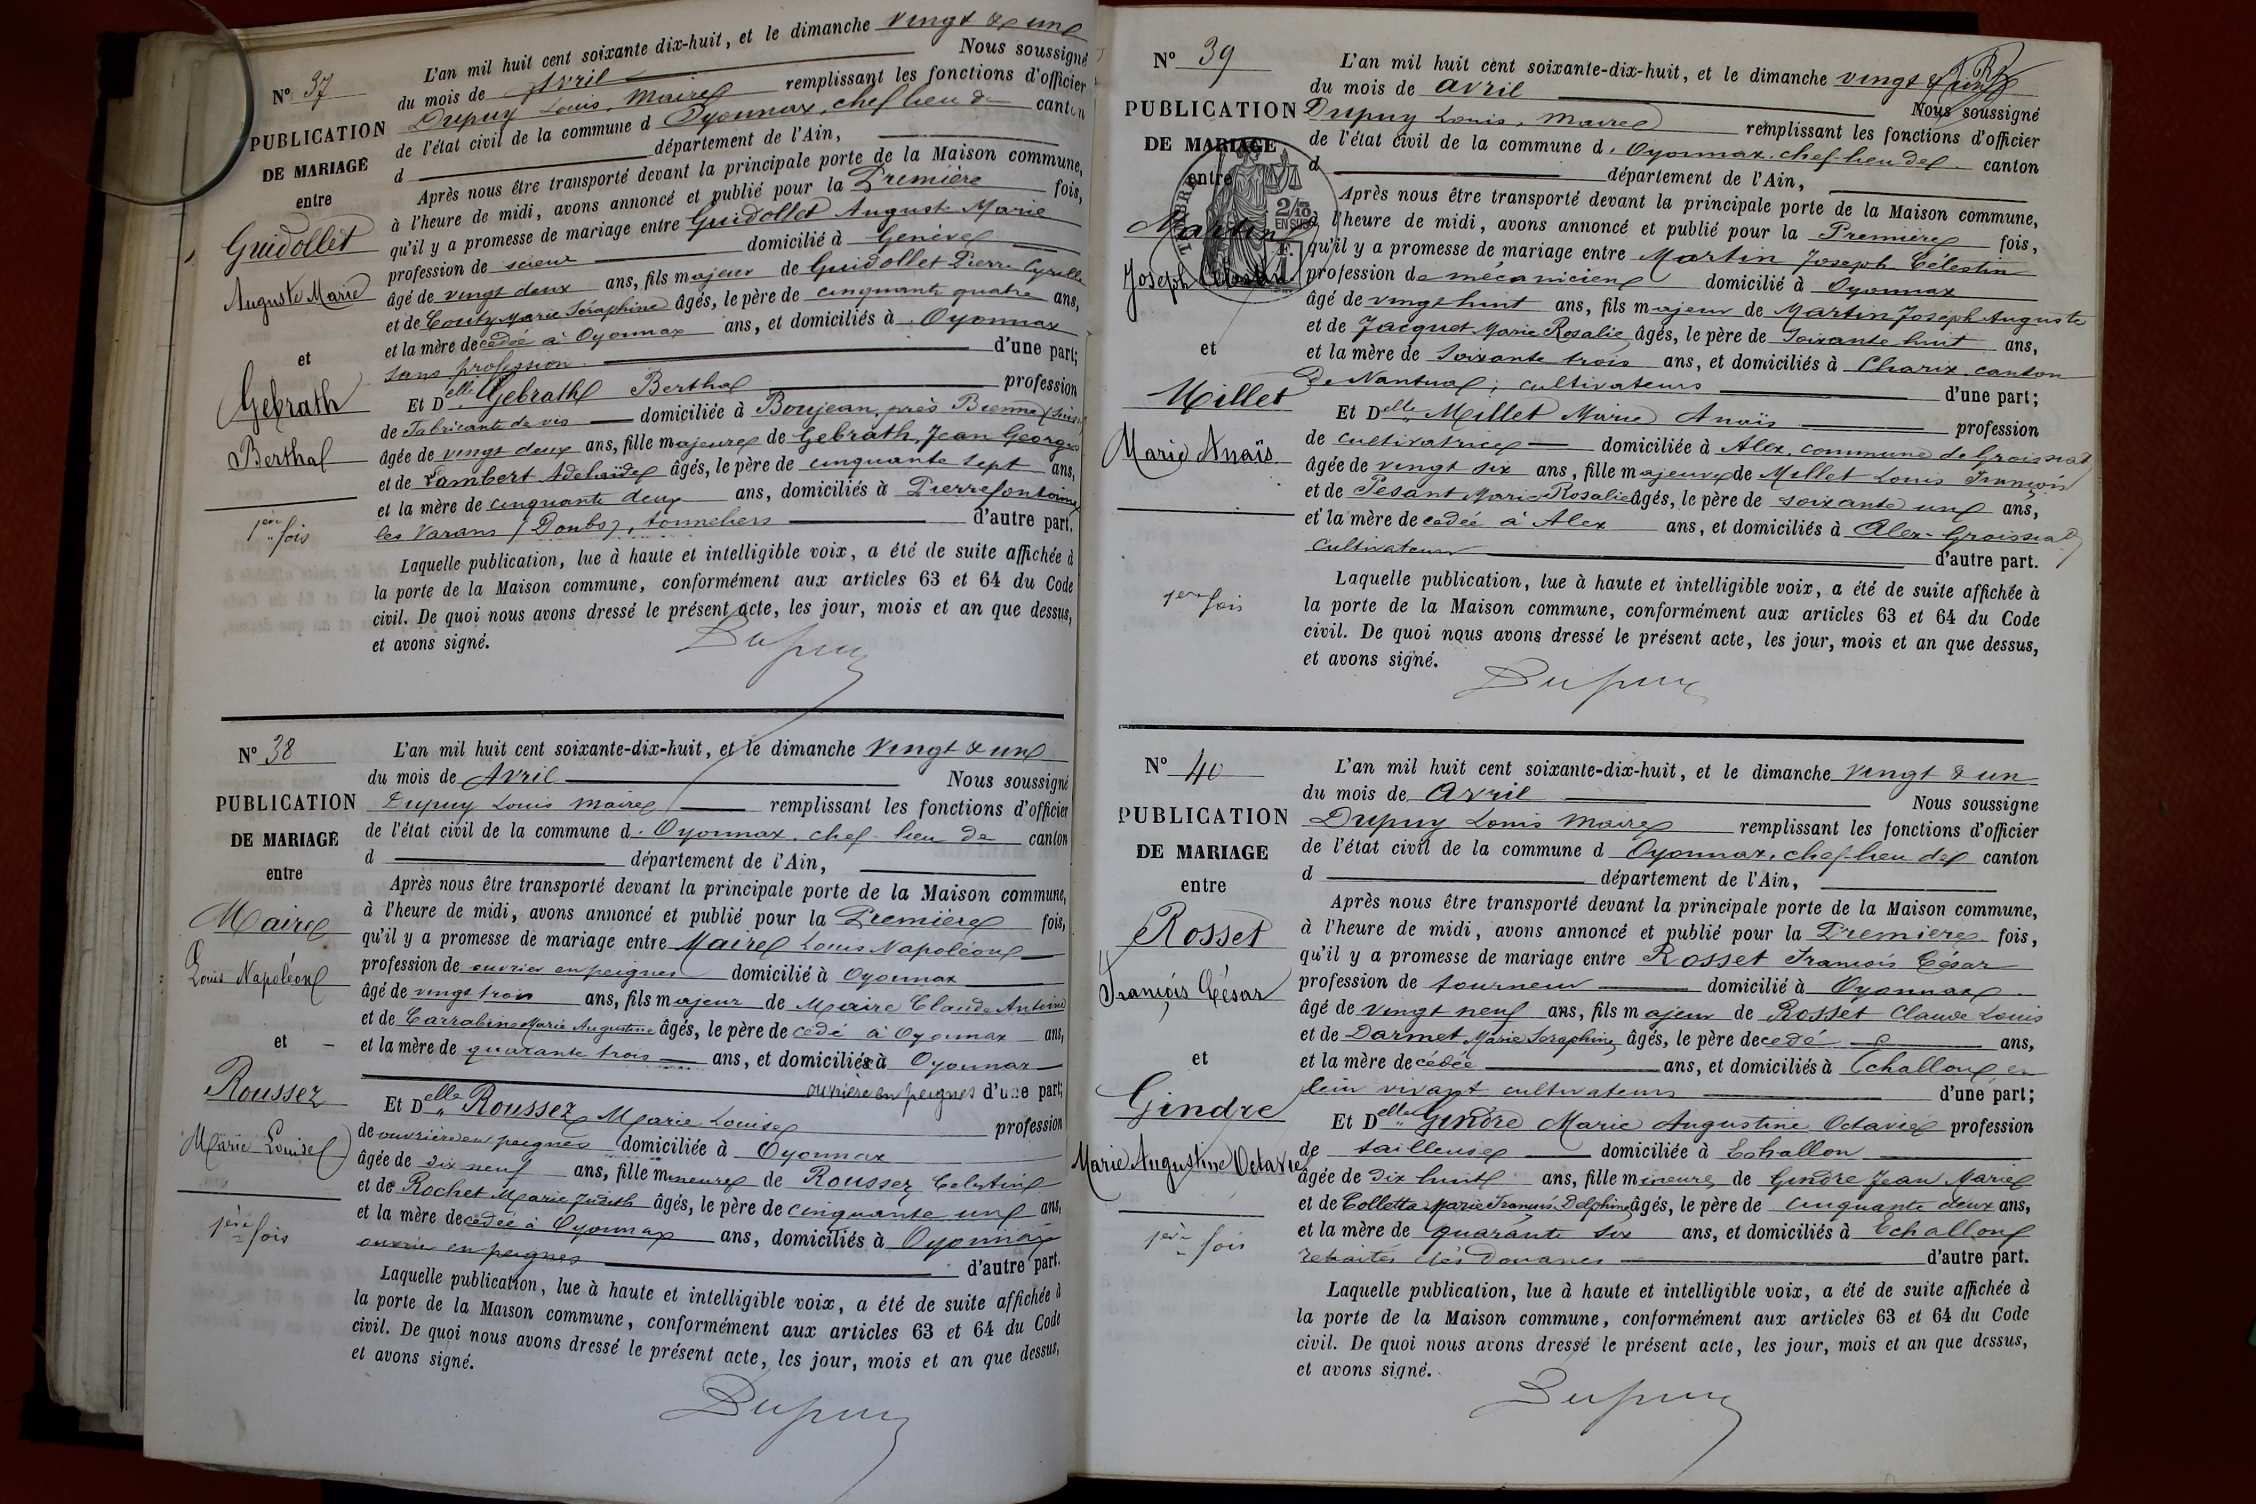 N° 37
PUBLICATION
DE MARIAGE
entre
Guidollet
Auguste Marie
et
Gebrath
Bertha
1ère fois
L'an mil huit cent soixante dix-huit, et le dimanche vingt & un
du mois de Avril Nous soussigné
Dupuy Louis, Maire remplissant les fonctions d'officier
de l'état civil de la commune d Oyonnax, chef lieu de canton
d département de l'Ain,
Après nous être transporté devant la principale porte de la Maison commune,
à l'heure de midi, avons annoncé et publié pour la Première fois,
qu'il y a promesse de mariage entre Guidollet Auguste Marie
profession de scieur domicilié à Genève
âgé de vingt deux ans, fils majeur de Guidollet Pierre Cyrille
et de Couty Marie Séraphine âgés, le père de cinquante quatre ans,
et la mère decédée à Oyonnax ans, et domiciliés à Oyonnax
sans profession d'une part;
Et Delle Gebrath Bertha profession
de Fabricante de vis domiciliée à Boujean, près Bienne (Suisse)
âgée de vingt deux ans, fille majeure de Gebrath, Jean Georges
et de Lambert Adelaïde âgés, le père de cinquante sept ans,
et la mère de cinquante deux ans, domiciliés à Pierrefontaine
les Varans (Doubs), tonneliers d'autre part.
Laquelle publication, lue à haute et intelligible voix, a été de suite affichée à
la porte de la Maison commune, conformément aux articles 63 et 64 du Code
civil. De quoi nous avons dressé le présent acte, les jour, mois et an que dessus,
et avons signé.
Dupuy
N° 38
PUBLICATION
DE MARIAGE
entre
Maire
Louis Napoléon
et
Roussez
Marie Louise
1ère fois
L'an mil huit cent soixante-dix-huit, et le dimanche vingt & un
du mois de Avril Nous soussigné
Dupuy Louis maire remplissant les fonctions d'officier
de l'état civil de la commune d Oyonnax, chef-lieu de canton
d département de l'Ain,
Après nous être transporté devant la principale porte de la Maison commune,
à l'heure de midi, avons annoncé et publié pour la Première fois,
qu'il y a promesse de mariage entre Maire Louis Napoléon
profession de ouvrier en peignes domicilié à Oyonnax
âgé de vingt trois ans, fils majeur de Maire Claude Antoine
et de Carrabine Marie Augustine âgés, le père de cédé à Oyonnax ans,
et la mère de quarante trois ans, et domiciliés à Oyonnax
ouvrière en peignes d'une part;
Et Delle Roussez Marie Louise profession
de ouvrière en peignes domiciliée à Oyonnax
âgée de dix neuf ans, fille mineure de Roussez Celestin
et de Rochet Marie Judith âgés, le père de cinquante un ans,
et la mère decédée à Oyonnax ans, domiciliés à Oyonnax
ouvrier en peignes d'autre part.
Laquelle publication, lue à haute et intelligible voix, a été de suite affichée à
la porte de la Maison commune, conformément aux articles 63 et 64 du Code
civil. De quoi nous avons dressé le présent acte, les jour, mois et an que dessus,
et avons signé.
Dupuy
N° 39
PUBLICATION
DE MARIAGE
entre
TIMBRE
2/10
EN SUS
Martin
Joseph Célestin
et
Millet
Marie Anaïs
1ère fois
L'an mil huit cent soixante-dix-huit, et le dimanche vingt & un
du mois de avril Nous soussigné
Dupuy Louis, maire remplissant les fonctions d'officier
de l'état civil de la commune d, Oyonnax, chef-lieu de canton
d département de l'Ain,
Après nous être transporté devant la principale porte de la Maison commune,
à l'heure de midi, avons annoncé et publié pour la Première fois,
qu'il y a promesse de mariage entre Martin Joseph Célestin
profession de mécanicien domicilié à Oyonnax
âgé de vingt huit ans, fils majeur de Martin Joseph Auguste
et de Jacquet Marie Rosalie âgés, le père de soixante huit ans,
et la mère de soixante trois ans, et domiciliés à Charix, canton
de Nantua, cultivateurs d'une part;
Et Delle Millet Marie Anaïs profession
de cultivatrice domiciliée à Alex, commune de Groissiat
âgée de vingt six ans, fille majeure de Millet Louis François
et de Pesant Marie Rosalie âgés, le père de soixante un ans,
et la mère de cedée à Alex ans, et domiciliés à Alex-Groissiat
cultivateur d'autre part.
Laquelle publication, lue à haute et intelligible voix, a été de suite affichée à
la porte de la Maison commune, conformément aux articles 63 et 64 du Code
civil. De quoi nous avons dressé le présent acte, les jour, mois et an que dessus,
et avons signé.
Dupuy
N° 40
PUBLICATION
DE MARIAGE
entre
Rosset
François César
et
Gindre
Marie Augustine Octavie
1ère fois
L'an mil huit cent soixante-dix-huit, et le dimanche vingt & un
du mois de Avril Nous soussigné
Dupuy Louis Maire remplissant les fonctions d'officier
de l'état civil de la commune d Oyonnax, chef-lieu de canton
d département de l'Ain,
Après nous être transporté devant la principale porte de la Maison commune,
à l'heure de midi, avons annoncé et publié pour la Première fois,
qu'il y a promesse de mariage entre Rosset François César
profession de tourneur domicilié à Oyonnax
âgé de vingt neuf ans, fils majeur de Rosset Claude Louis
et de Darmet Marie Seraphine âgés, le père decedé ans,
et la mère decédée ans, et domiciliés à Echallon en
leur vivant cultivateurs d'une part;
Et Delle Gindre Marie Augustine Octavie profession
de tailleuse domiciliée à Echallon
âgée de dix huit ans, fille mineure de Gindre Jean Marie
et de Colletta Marie Françoise Delphine âgés, le père de cinquante deux ans,
et la mère de quarante six ans, et domiciliés à Echallon
retraités des Douanes d'autre part.
Laquelle publication, lue à haute et intelligible voix, a été de suite affichée à
la porte de la Maison commune, conformément aux articles 63 et 64 du Code
civil. De quoi nous avons dressé le présent acte, les jour, mois et an que dessus,
et avons signé.
Dupuy